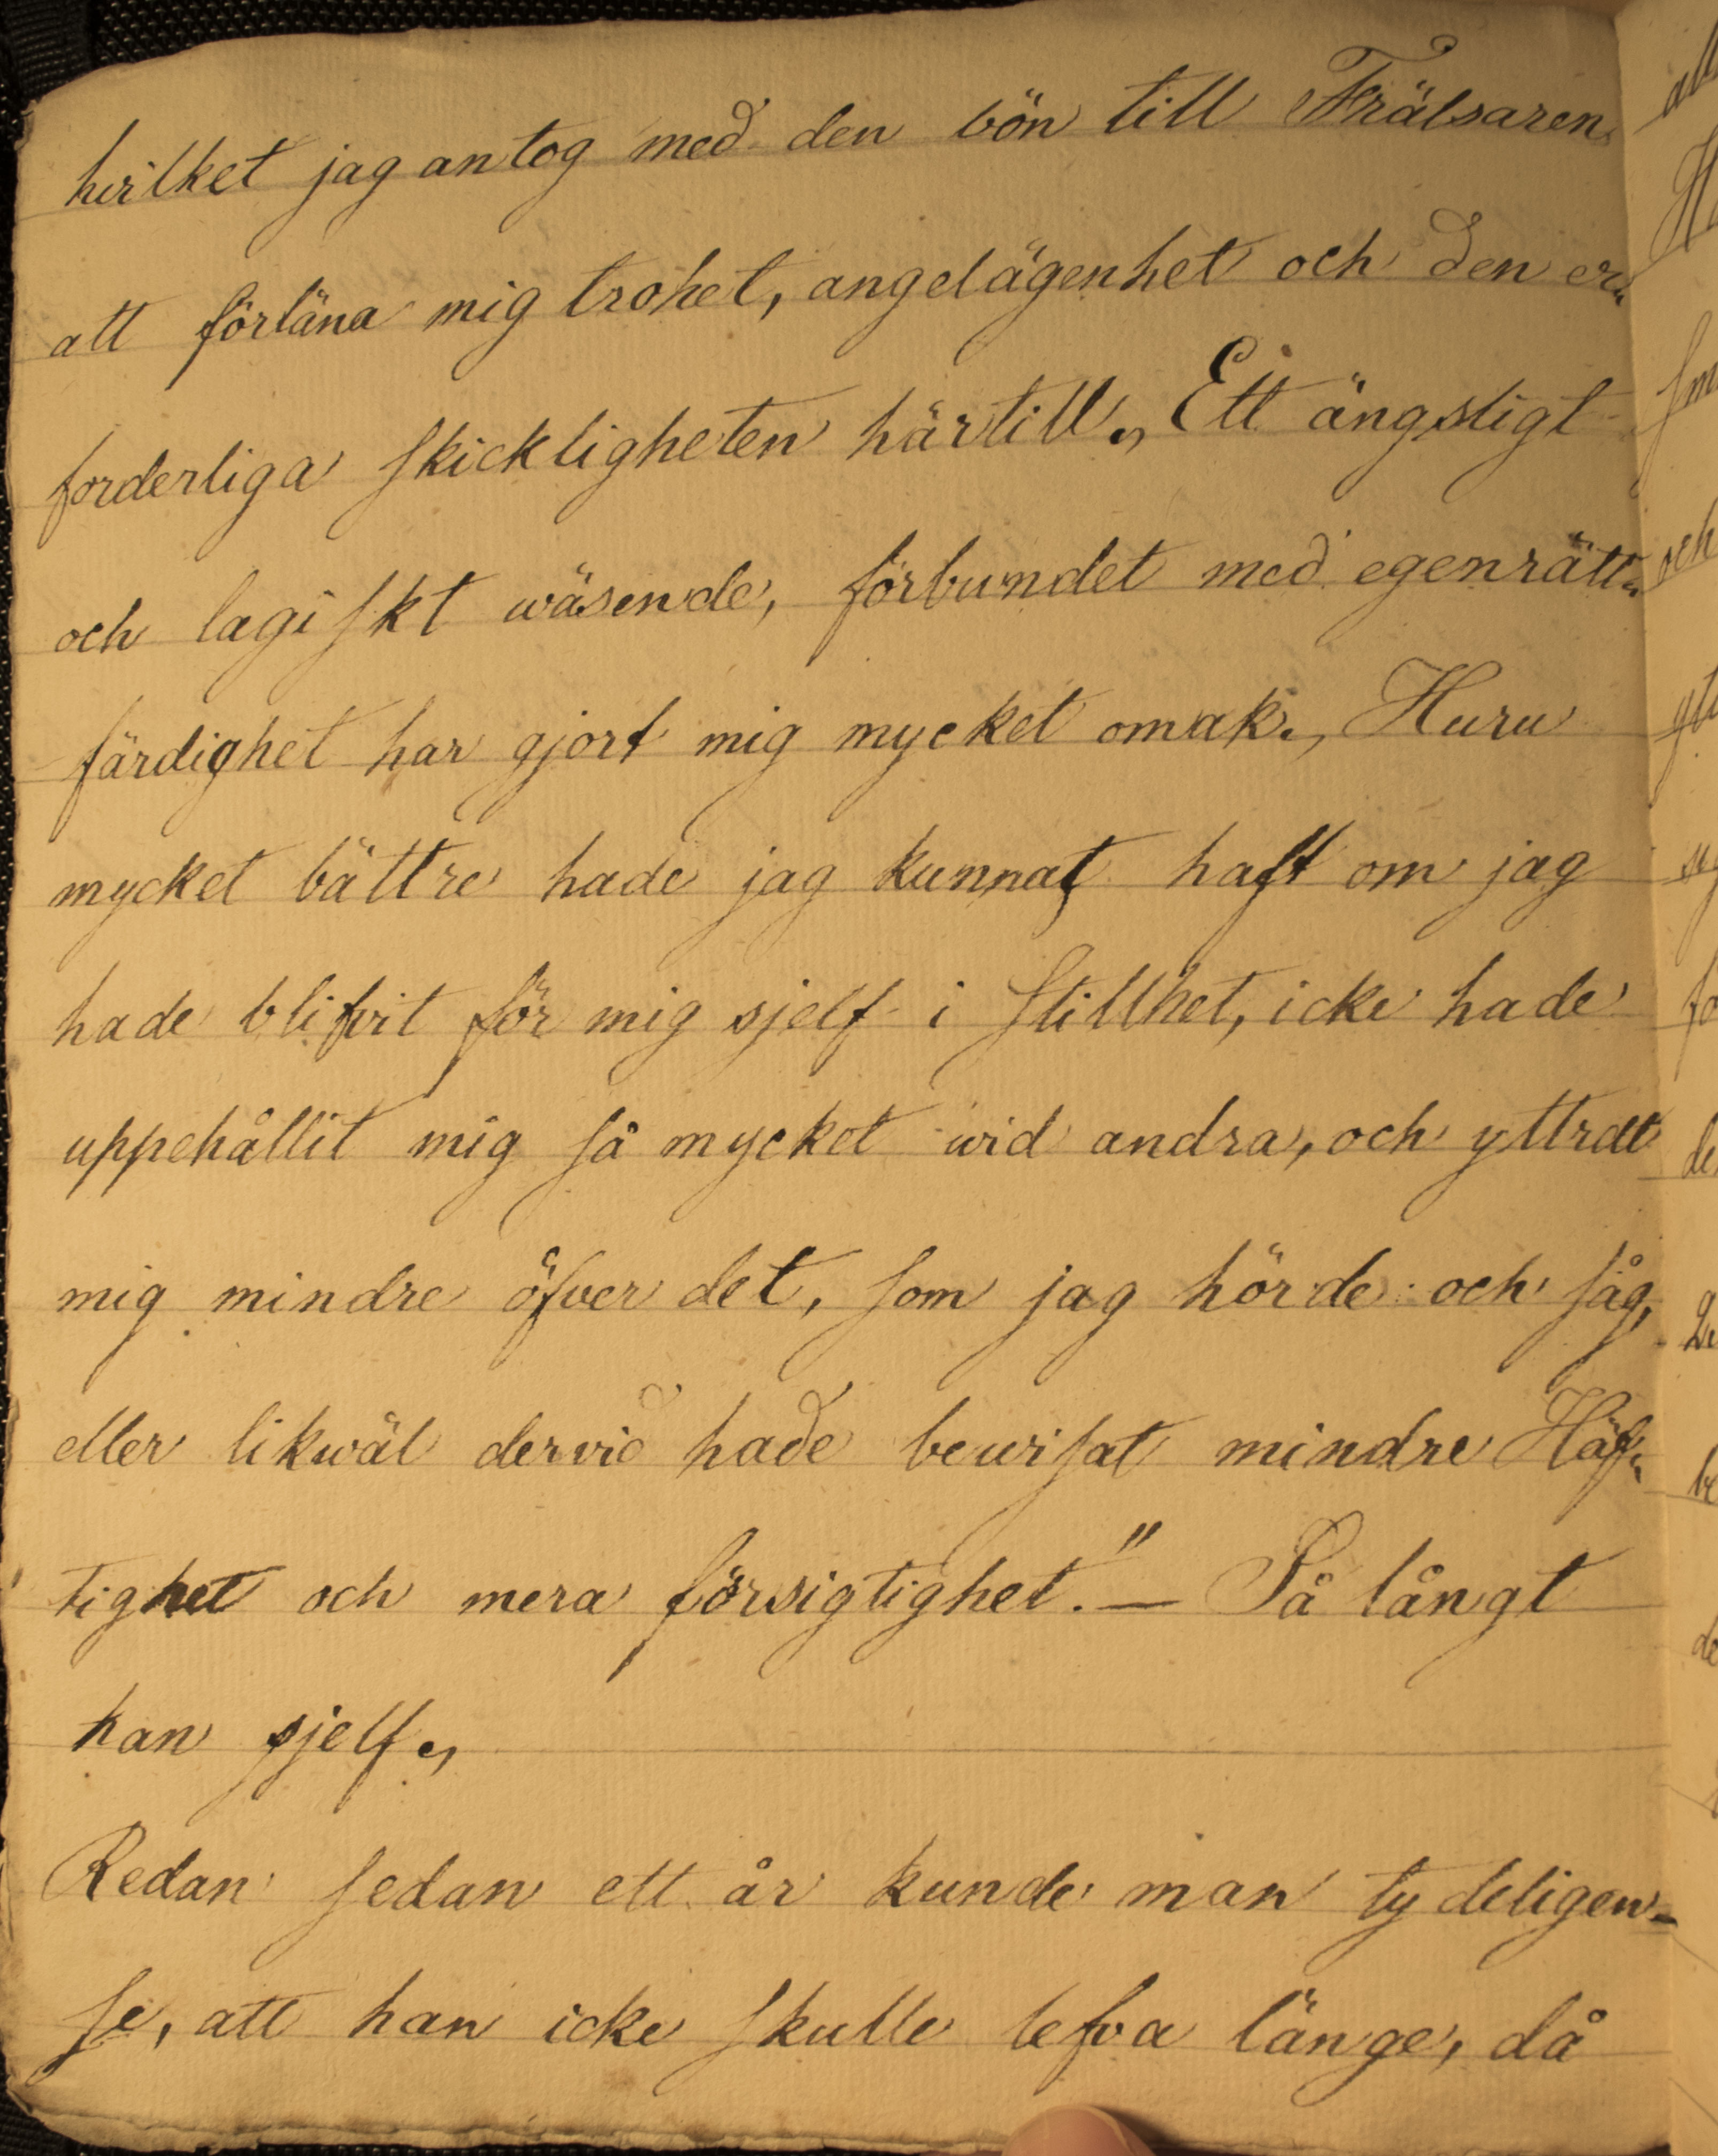 hvilket jag antog med den bön till Frälsaren
att förläna mig trohet, angelägenhet och den er„
forderliga skickligheten härtill., Ett ängsligt
och lagiskt wäsende, förbundet med egenrätt„
färdighet har gjort mig mycket omak., Huru
mycket bättre hade jag kunnat haft om jag
hade blifvit för mig sjelf i stillhet, icke hade
uppehållit mig så mycket wid andra, och yttrat
mig mindre öfver det, som jag hörde och såg,
eller likwäl dervid hade bewisat mindre Häf„
tighet och mera försigtighet." — Så långt
han sjelf.,
Redan sedan ett år kunde man tydeligen
se, att han icke skulle lefva länge, då